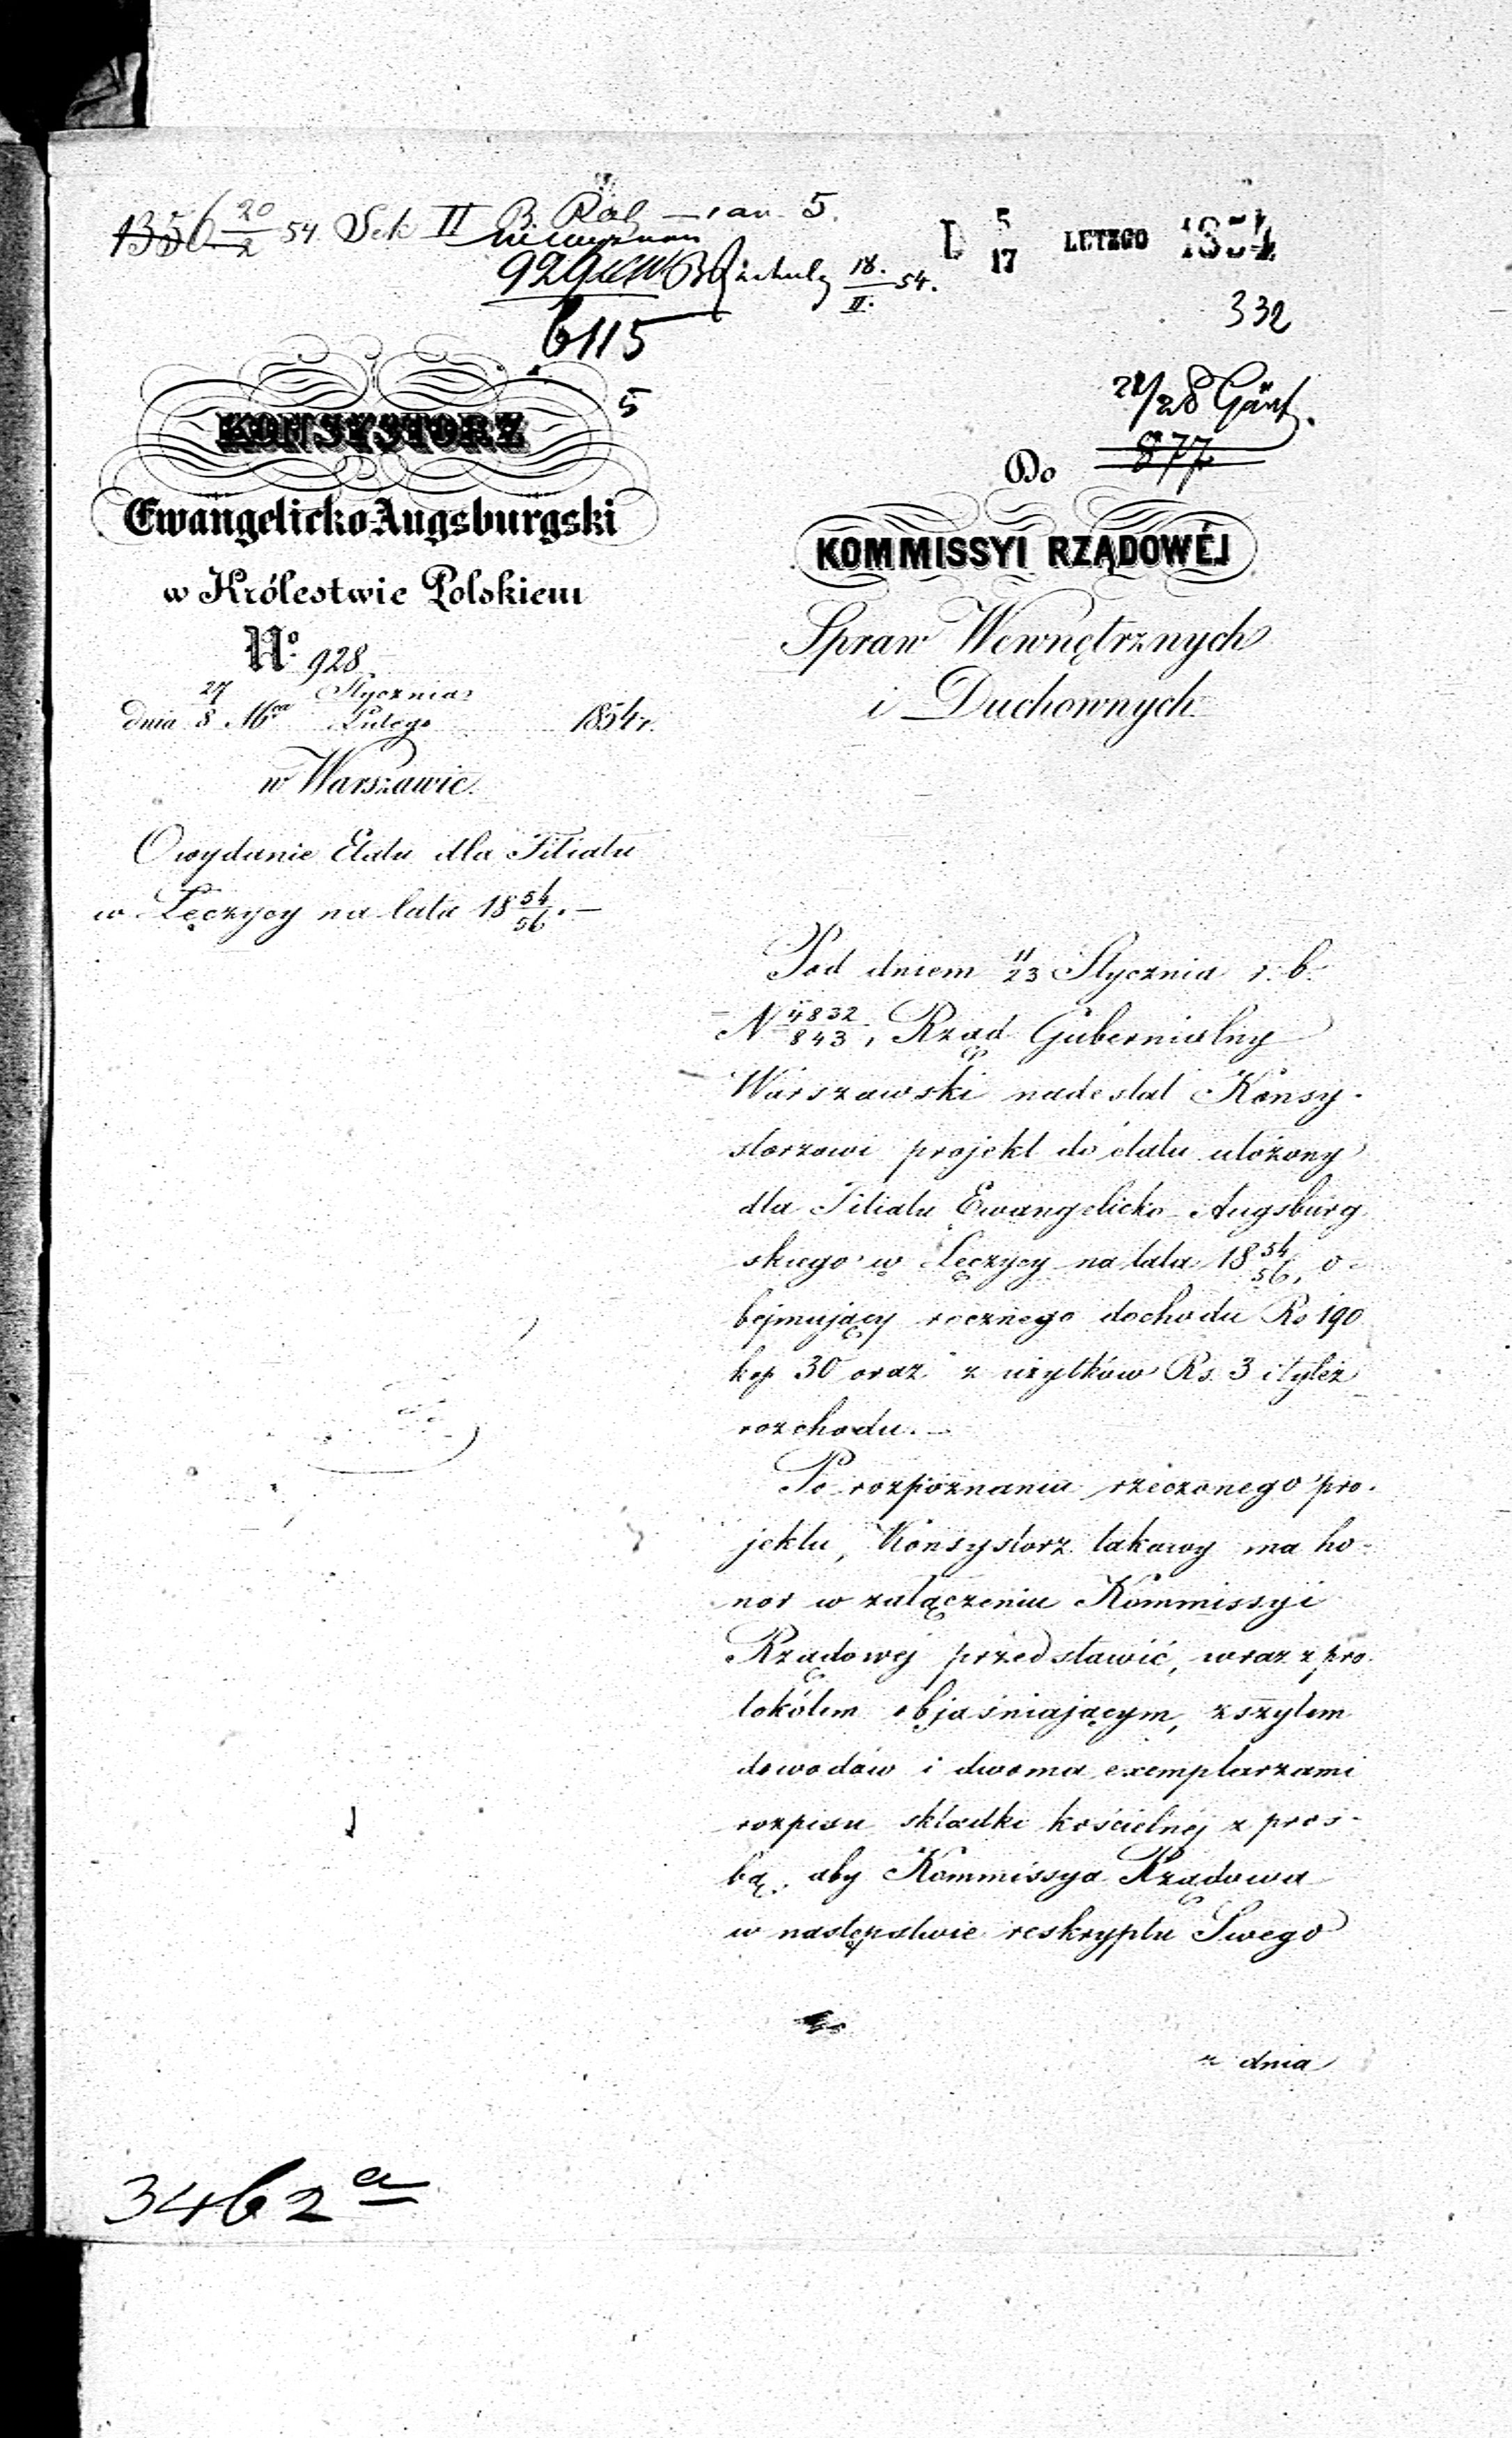 1356 20/2 54. Sek II B. Ral 5.
929 18./II. 54.
6115
5
D 5/17 LUTEGO 1854
332
21/28
877
KONSYSTORZ
Ewangelicko-Augsburgski
w Królestwie Polskiem
No. 928
dnia 27/8 Mca Stycznia/Lutego 1854 r.
w Warszawie.
O wydanie Etatu dla Filiału
w Łęczycy na lata 18 54/56. —
Do
KOMMISSYI RZĄDOWÉJ
Spraw Wewnętrznych
i Duchownych
Pod dniem 11/23 Stycznia r. b.
N 4832/843, Rząd Gubernialny
Warszawski nadesłał Konsy-
storzowi projekt do etatu ułożony
dla Filiału Ewangelicko-Augsburg
skiego w Łęczycy na lata 18 54/56, o-
bejmujący rocznego dochodu Rs 190
kop 30 oraz z użytków Rs. 3 i tyleż
rozchodu. —
Po rozpoznaniu rzeczonego pro-
jektu, Konsystorz takowy ma ho-
nor w załączeniu Kommissyi
Rządowej przedstawić, wraz z pro-
tokółem objaśniającym, zszytem
dowodów i dwoma exemplarzami
rozpisu składki kościelnéj z proś-
bą, aby Kommissya Rządowa
w następstwie reskryptu Swego
z dnia
3462 a